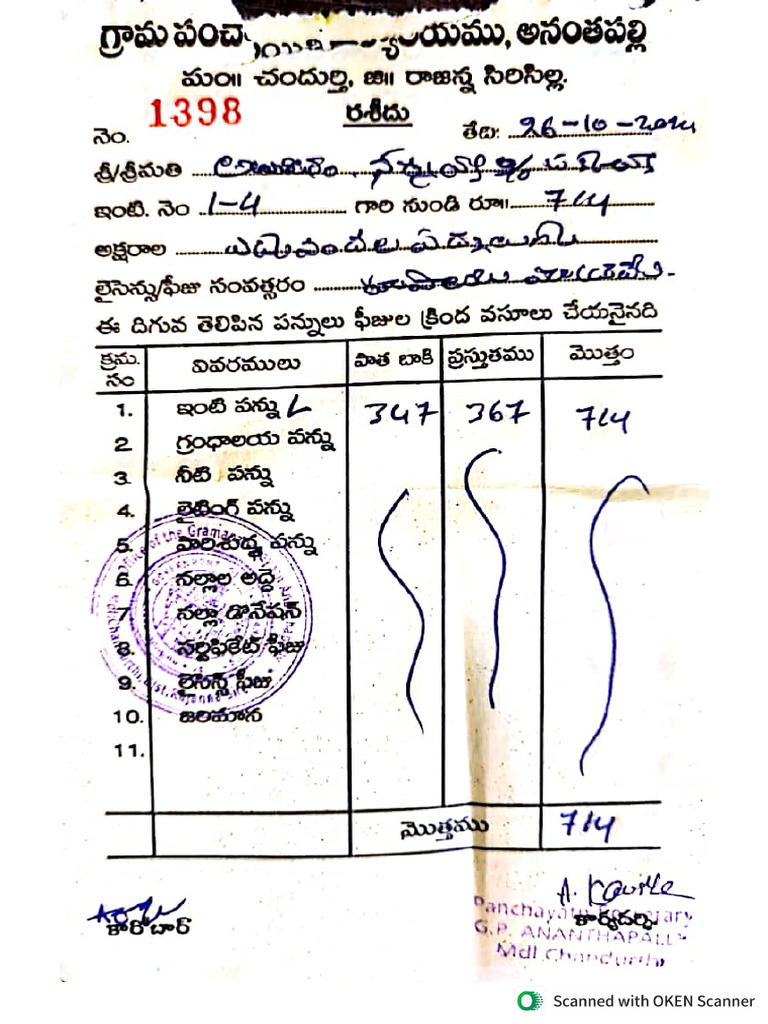 గ్రామ పంచాయితి కార్యాలయము, అనంతపల్లి
మం॥ చందుర్తి, జి॥ రాజన్న సిరిసిల్ల.
1398 రశీదు
నెం. తేది: 26-10-2024
శ్రీ/శ్రీమతి
ఇంటి. నెం 1-4 గారి నుండి రూ॥ 714
అక్షరాల
లైసెన్సు/ఫీజు సంవత్సరం
ఈ దిగువ తెలిపిన పన్నులు ఫీజుల క్రింద వసూలు చేయనైనది
క్రమ. సం వివరములు పాత బాకి ప్రస్తుతము మొత్తం
1. ఇంటి పన్ను 347 367 714
2 గ్రంధాలయ పన్ను
3 నీటి పన్ను
4. లైటింగ్ పన్ను
5. పారిశుద్ధ్య పన్ను
6. నల్లాల అద్దె
7. నల్లా డొనేషన్
8. సర్టిఫికేట్ ఫీజు
9. లైసెన్స్ ఫీజు
10. జరిమాన
11.
మొత్తము 714
కారోబార్ కార్యదర్శి
Panchayath Secretary
G.P. ANANTHAPALLY
Mdl.Chandurthi
Scanned with OKEN Scanner